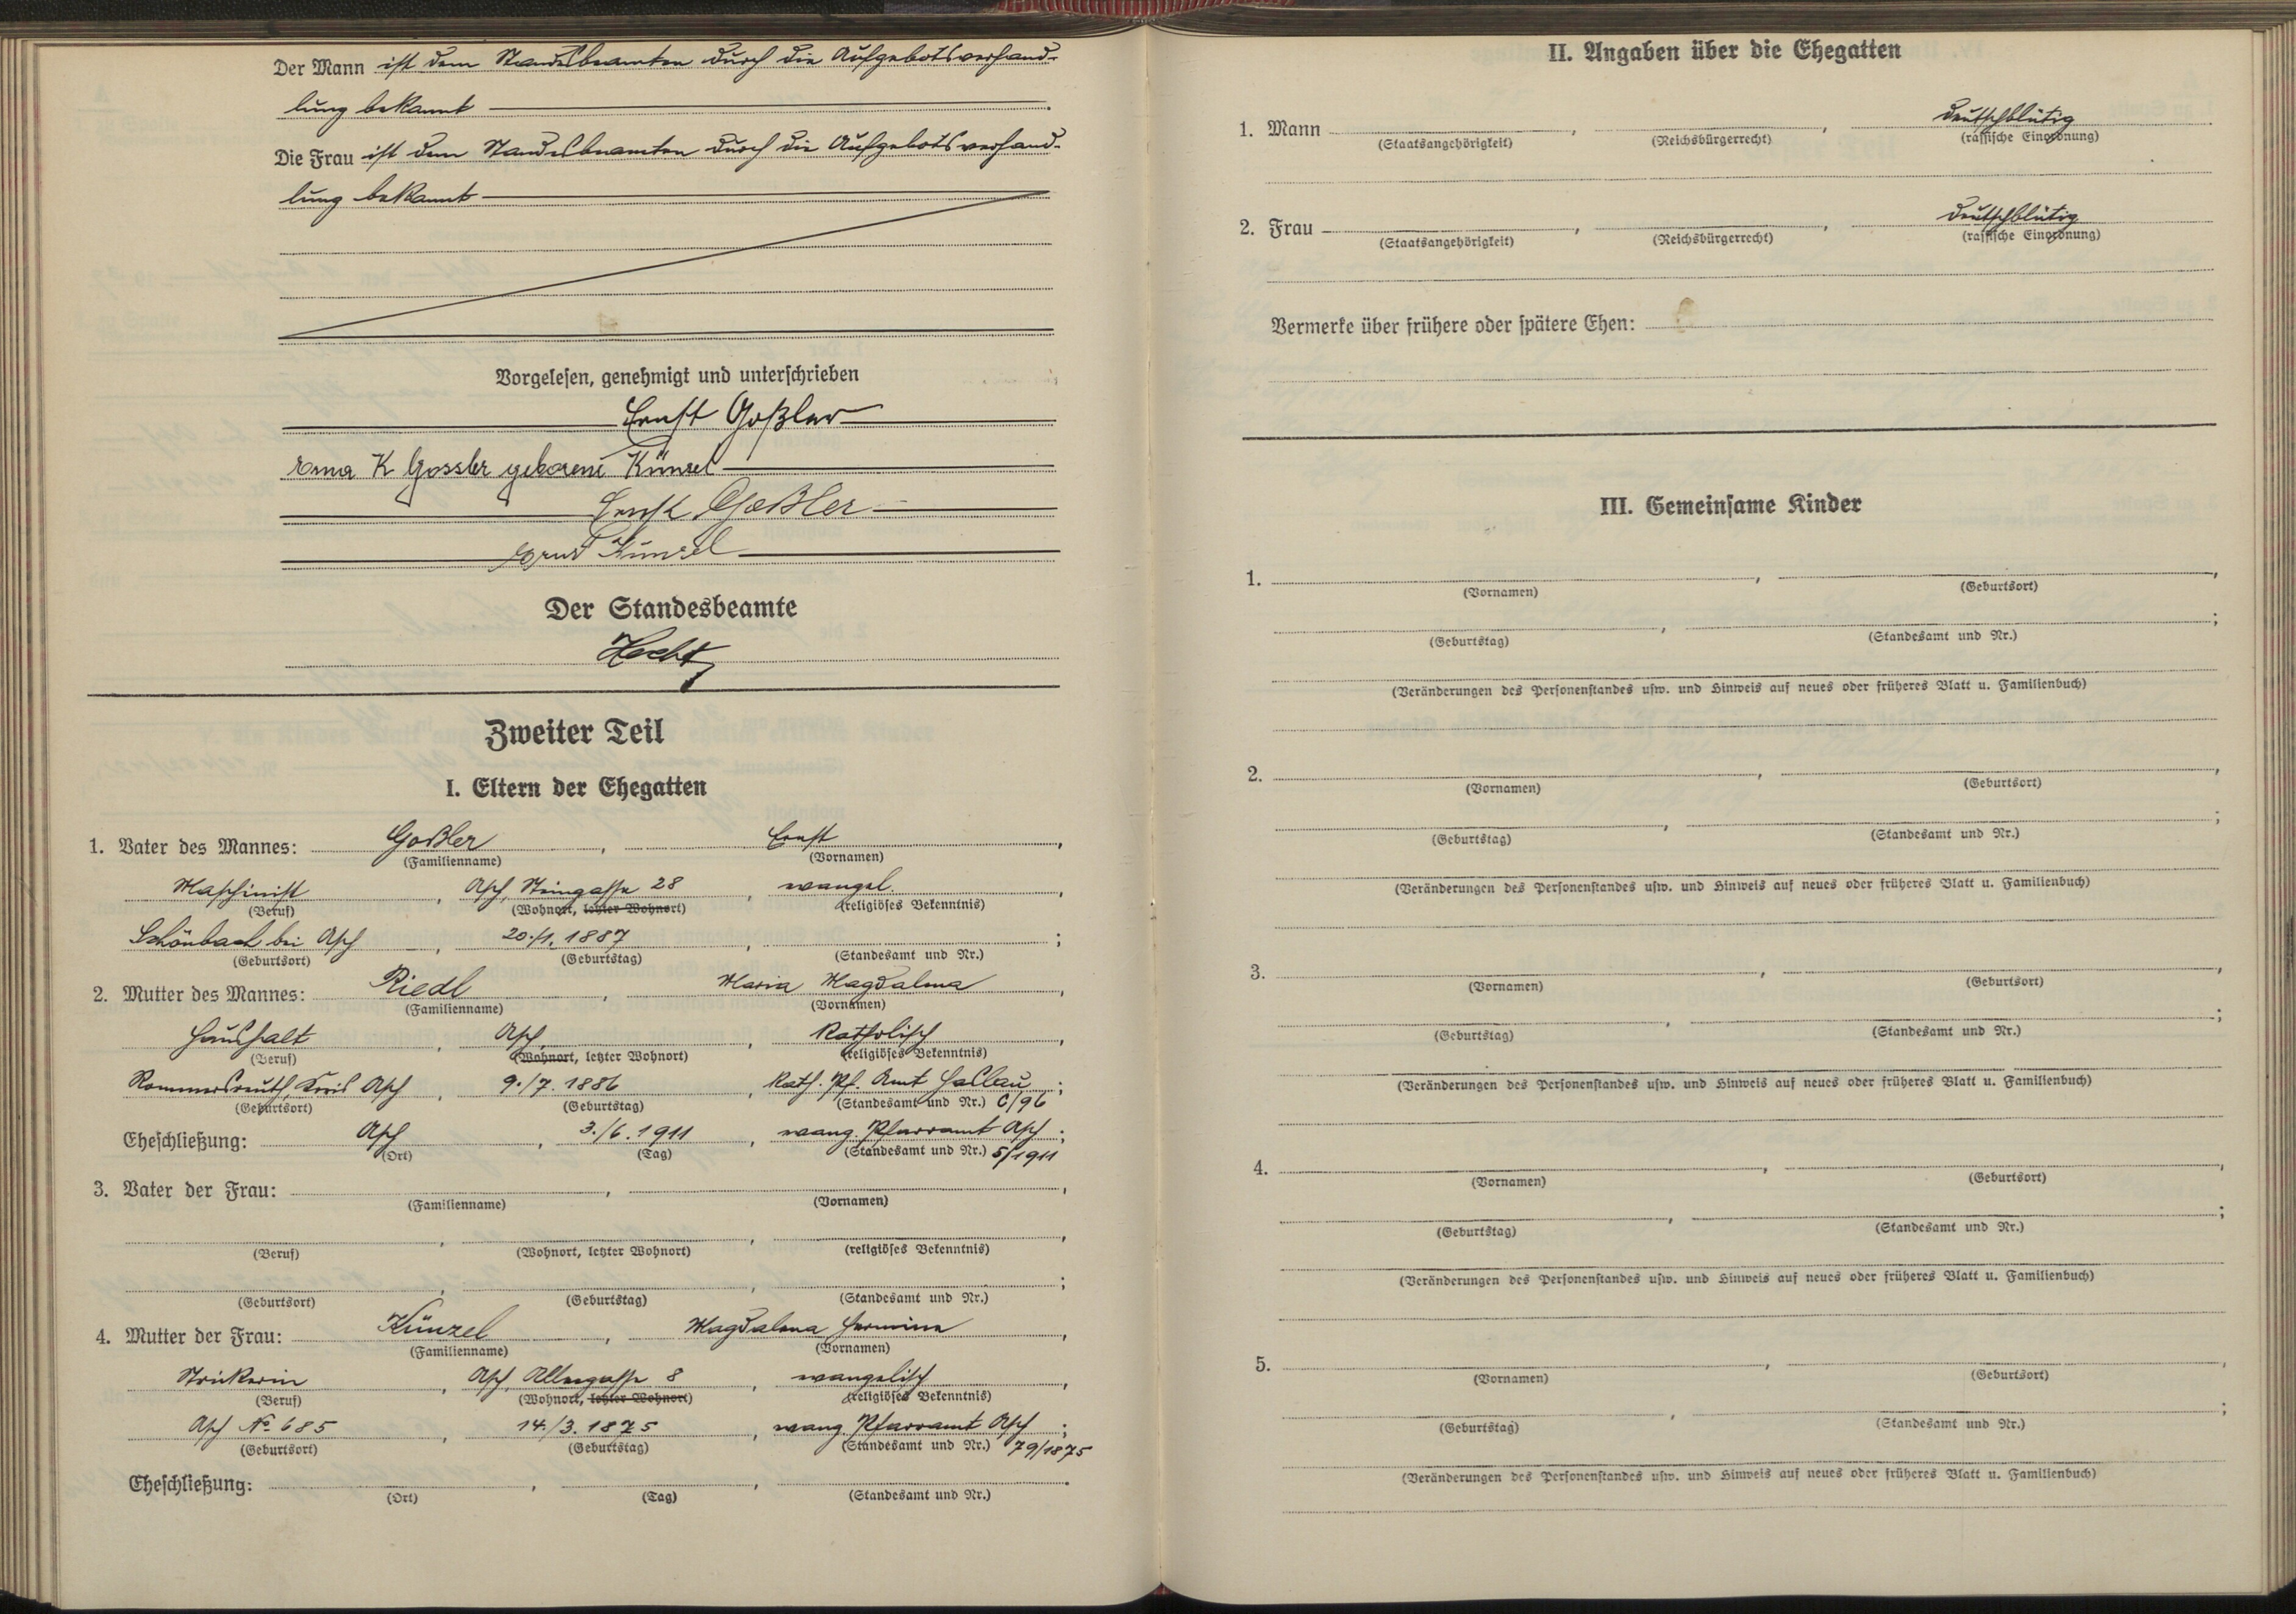 Der Mann ist dem Standesbeamten durch die Aufgebotsverhand-
lung bekannt
Die Frau ist dem Standesbeamten durch die Aufgebotsverhand-
lung bekannt
Vorgelesen, genehmigt und unterschrieben
Ernst Goßler
Erna K Gossler geborene Künzel
Ernst Goßler
Ernst Künzel
Der Standesbeamte
Hecht
Zweiter Teil
I. Eltern der Ehegatten
1. Vater des Mannes: Goßler, Ernst,
(Familienname) (Vornamen)
Maschinist, Asch, Steingasse 28, evangel.,
(Beruf) (Wohnort, letzter Wohnort) (religiöses Bekenntnis)
Schönbach bei Asch, 20./1. 1887, ;
(Geburtsort) (Geburtstag) (Standesamt und Nr.)
2. Mutter des Mannes: Riedl, Maria Magdalena,
(Familienname) (Vornamen)
Haushalt, Asch, Katholisch,
(Beruf) (Wohnort, letzter Wohnort) (religiöses Bekenntnis)
Rommersreuth, Kreis Asch, 9./7. 1886, Kath. Pf. Amt Haslau;
(Geburtsort) (Geburtstag) (Standesamt und Nr.) C/96
Eheschließung: Asch, 3./6. 1911, evang. Pfarramt Asch;
(Ort) (Tag) (Standesamt und Nr.) 5/1911
3. Vater der Frau: , ,
(Familienname) (Vornamen)
(Beruf) (Wohnort, letzter Wohnort) (religiöses Bekenntnis)
(Geburtsort) (Geburtstag) (Standesamt und Nr.)
4. Mutter der Frau: Künzel, Magdalena Hermine,
(Familienname) (Vornamen)
Strickerin, Asch, 8, evangelisch,
(Beruf) (Wohnort, letzter Wohnort) (religiöses Bekenntnis)
Asch No 685, 14./3. 1875, evang. Pfarramt Asch;
(Geburtsort) (Geburtstag) (Standesamt und Nr.) 79/1875
Eheschließung: , , .
(Ort) (Tag) (Standesamt und Nr.)
II. Angaben über die Ehegatten
1. Mann , , deutschblütig
(Staatsangehörigkeit) (Reichsbürgerrecht) (rassische Einordnung)
2. Frau , , deutschblütig
(Staatsangehörigkeit) (Reichsbürgerrecht) (rassische Einordnung)
Vermerke über frühere oder spätere Ehen:
III. Gemeinsame Kinder
1. , ,
(Vornamen) (Geburtsort)
(Geburtstag) (Standesamt und Nr.)
(Veränderungen des Personenstandes usw. und Hinweis auf neues oder früheres Blatt u. Familienbuch)
2. , ,
(Vornamen) (Geburtsort)
(Geburtstag) (Standesamt und Nr.)
(Veränderungen des Personenstandes usw. und Hinweis auf neues oder früheres Blatt u. Familienbuch)
3. , ,
(Vornamen) (Geburtsort)
(Geburtstag) (Standesamt und Nr.)
(Veränderungen des Personenstandes usw. und Hinweis auf neues oder früheres Blatt u. Familienbuch)
4. , ,
(Vornamen) (Geburtsort)
(Geburtstag) (Standesamt und Nr.)
(Veränderungen des Personenstandes usw. und Hinweis auf neues oder früheres Blatt u. Familienbuch)
5. , ,
(Vornamen) (Geburtsort)
(Geburtstag) (Standesamt und Nr.)
(Veränderungen des Personenstandes usw. und Hinweis auf neues oder früheres Blatt u. Familienbuch)